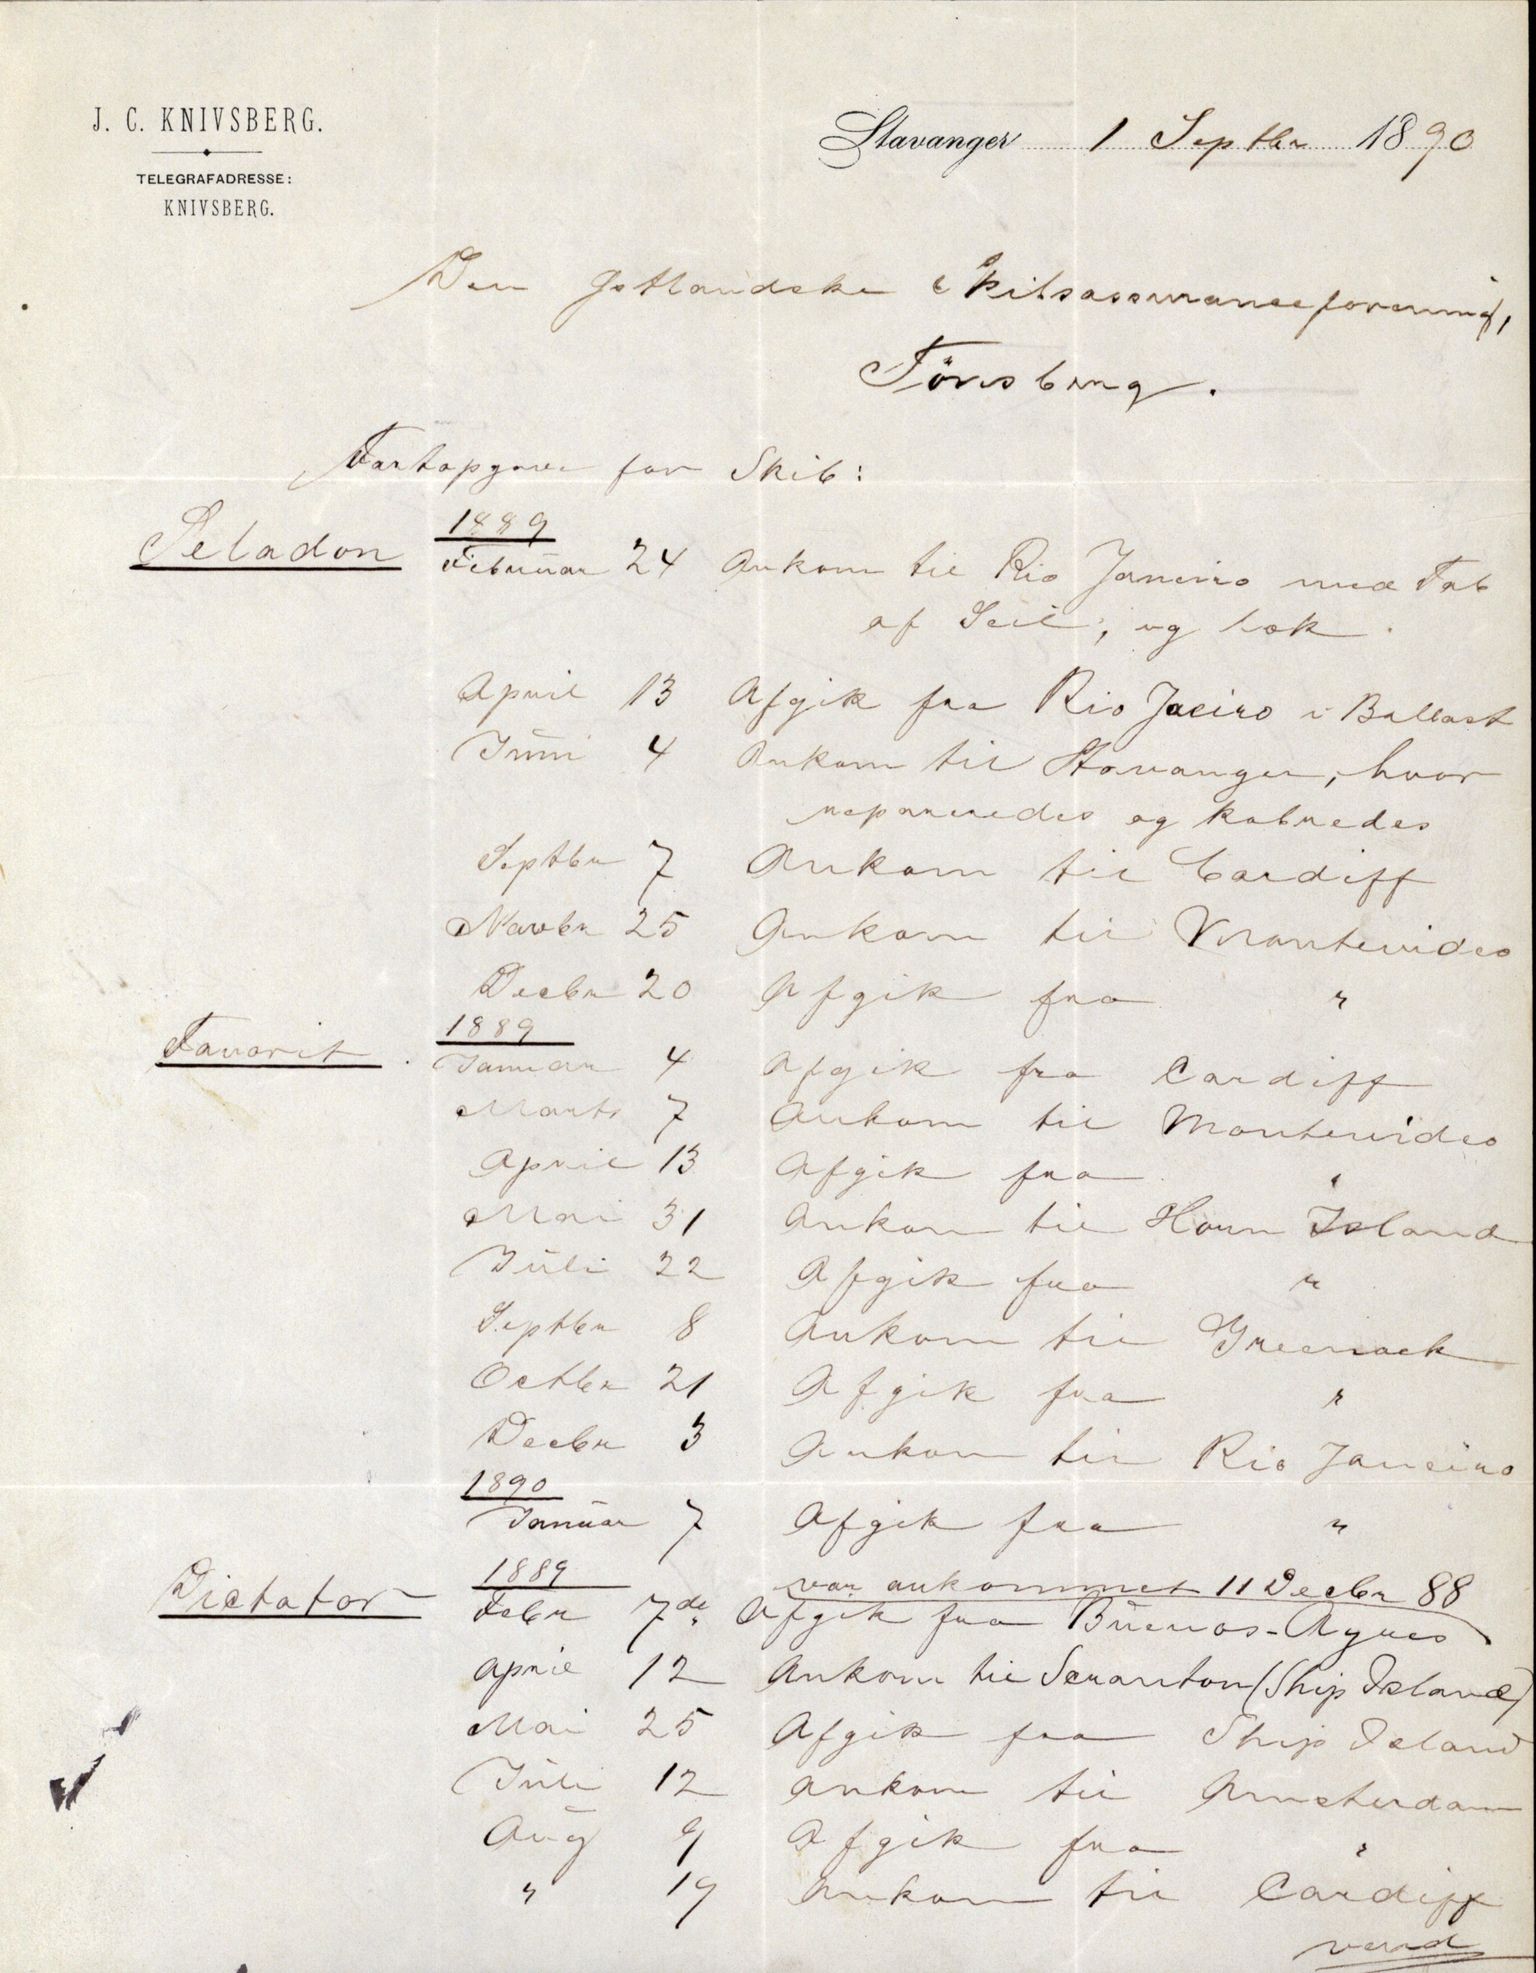 J. C. KNIVSBERG.
TELEGRAFADRESSE:
KNIVSBERG.
Stavanger 1 Septbr 1890
Den Østlandske Skibsassuranceforening,
Tönsberg.
Fartopgave for Skib:
Seladon
1889
Februar 24 Ankom til Rio Janeiro med Tab
af Seil, og læk.
April 13 Afgik fra Rio Jaeiro i Ballast
Juni 4 Ankom til Stavanger, hvor
repareredes og kobredes
Septbr 7 Ankom til Cardiff
Novbr 25 Ankom til Montevideo
Decbr 20 Afgik fra "
Favorit.
1889
Januar 4 Afgik fra Cardiff
Marts 7 Ankom til Montevideo
April 13 Afgik fra "
Mai 31 Ankom til Horn Island
Juli 22 Afgik fra "
Septbr 8 Ankom til Greenock
Octbr 21 Afgik fra "
Decbr 3 Ankom til Rio Janeiro
1890
Januar 7 Afgik fra "
Dictator
1889 var ankommet 11 Decbr 88
Febr 7de Afgik fra Buenos-Ayres
April 12 Ankom til Scranton (Ship Island)
Mai 25 Afgik fra Ship Island
Juli 12 Ankom til Amsterdam
Aug 9 Afgik fra "
" 19 Ankom til Cardiff
vend